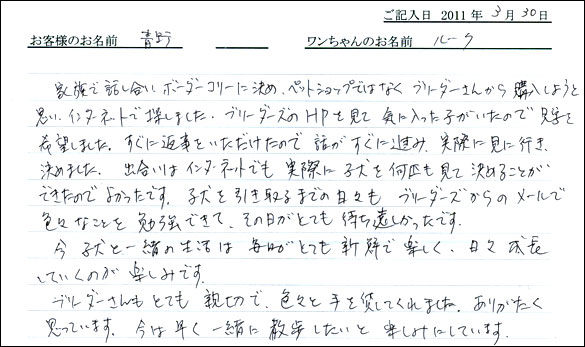 ご記入日 2011年 3月 30日
お客様のお名前 青野 ワンちゃんのお名前 ルーク
家族で話し合い ボーダーコリーに決め、ペットショップではなく ブリーダーさんから 購入しようと
思い、インターネットで探しました。ブリーダーズのHPを見て 気に入った子がいたので 見学を
希望しました。すぐに返事をいただけたので 話がすぐに進み、実際に見に行き、
決めました。 出会いは インターネットでも 実際に 子犬を何匹も見て決めることが
できたので よかったです。子犬を引き取るまでの日々も ブリーダーズからのメールで
色々なことを 勉強できて、その日がとても 待ち遠しかったです。
今 子犬と一緒の生活は 毎日がとても 新鮮で 楽しく、日々 成長
していくのが 楽しみです。
ブリーダーさんも とても 親切で、色々と 手を貸してくれました。ありがたく
思っています。今は早く 一緒に 散歩したいと 楽しみにしています。